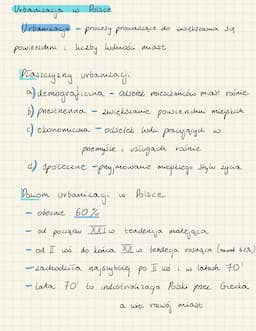 Urbanizacja w Polsce
Urbanizacja - procesy prowadzące do zwiększania się
powierzchni i liczby ludności miast
Płaszczyzny urbanizacji
a) demograficzna - odsetek mieszkańców miast rośnie
b) przestrzenna - zwiększanie powierzchni miejskich
c) ekonomiczna - odsetek ludzi pracujących w
przemyśle i usługach rośnie
d) społeczne - przyjmowanie miejskiego stylu życia
Poziom urbanizacji w Polsce
- obecnie 60%
- od początku XXI w tendencja malejąca
- od II wś do końca XX w tendencja rosnąca (nawet 62%)
- zachodziła najszybciej po II wś i w latach 70'
- lata 70' to industrializacja Polski przez Gierka
a więc rozwój miast